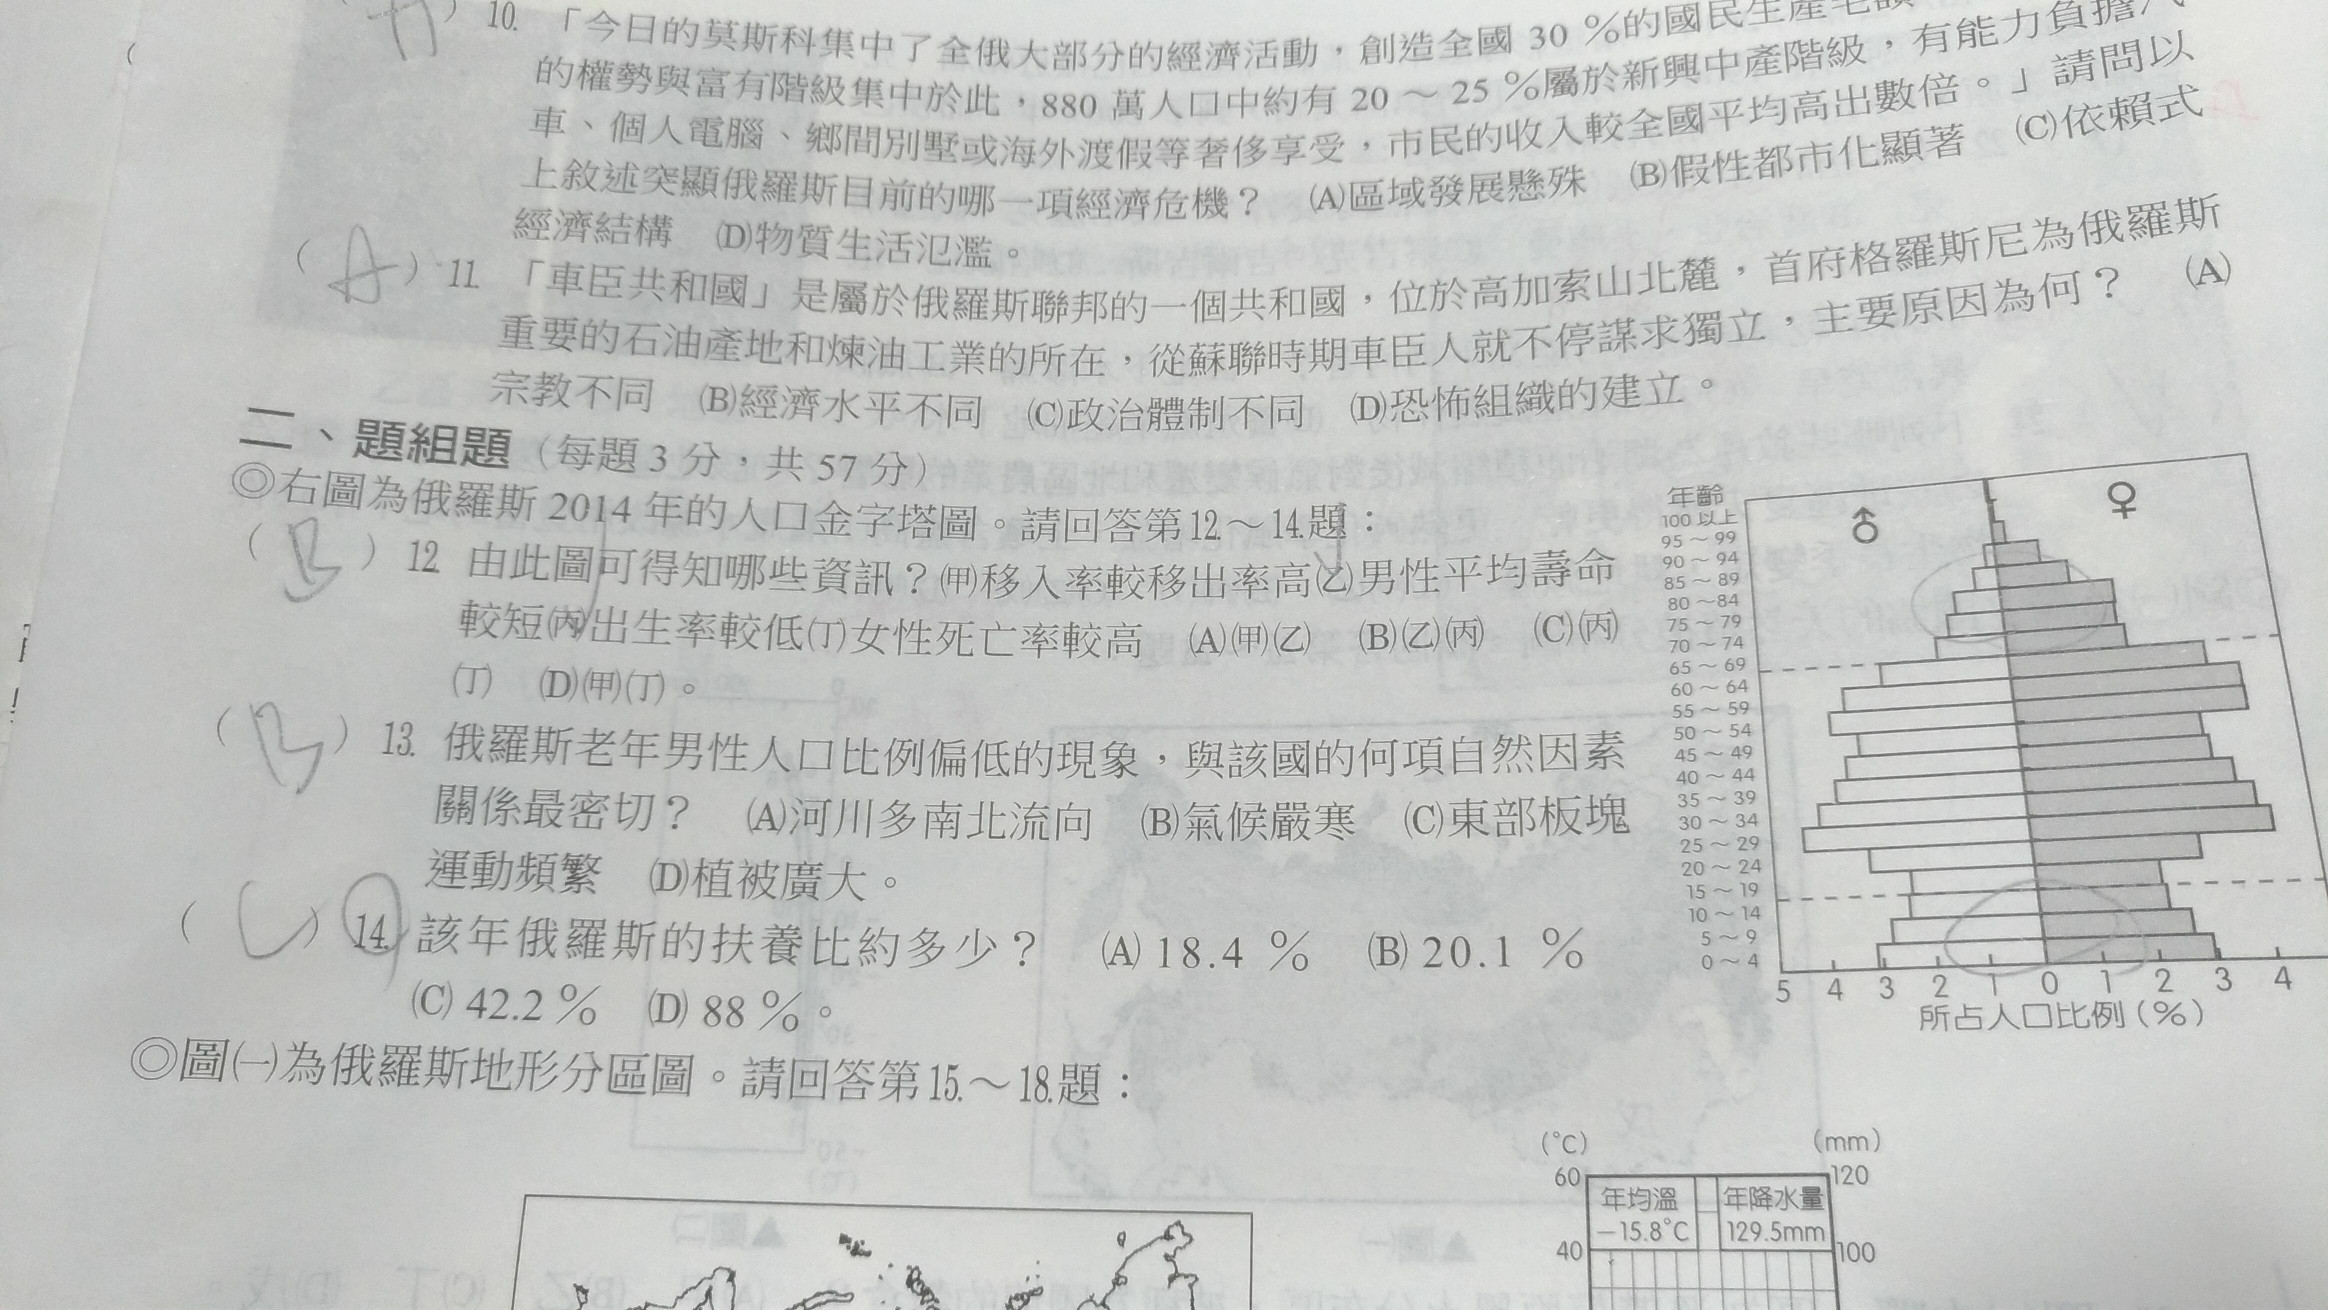 10. 「今日的莫斯科集中了全俄大部分的經濟活動，創造全國 30 %的國民生產毛額
的權勢與富有階級集中於此，880 萬人口中約有 20 ～ 25 %屬於新興中產階級，有能力負擔
車、個人電腦、鄉間別墅或海外渡假等奢侈享受，市民的收入較全國平均高出數倍。」請問以
上敘述突顯俄羅斯目前的哪一項經濟危機？ (A)區域發展懸殊 (B)假性都市化顯著 (C)依賴式
經濟結構 (D)物質生活氾濫。
(A) 11. 「車臣共和國」是屬於俄羅斯聯邦的一個共和國，位於高加索山北麓，首府格羅斯尼為俄羅斯
重要的石油產地和煉油工業的所在，從蘇聯時期車臣人就不停謀求獨立，主要原因為何？ (A)
宗教不同 (B)經濟水平不同 (C)政治體制不同 (D)恐怖組織的建立。
二、題組題（每題 3 分，共 57 分）
◎右圖為俄羅斯 2014 年的人口金字塔圖。請回答第 12.～ 14.題：
(B) 12. 由此圖可得知哪些資訊？(甲)移入率較移出率高(乙)男性平均壽命
較短(丙)出生率較低(丁)女性死亡率較高 (A)(甲)(乙) (B)(乙)(丙) (C)(丙)
(丁) (D)(甲)(丁)。
(B) 13. 俄羅斯老年男性人口比例偏低的現象，與該國的何項自然因素
關係最密切？ (A)河川多南北流向 (B)氣候嚴寒 (C)東部板塊
運動頻繁 (D)植被廣大。
(C) 14. 該年俄羅斯的扶養比約多少？ (A) 18.4 % (B) 20.1 %
(C) 42.2 % (D) 88 %。
年齡
♂ ♀
100 以上
95 ～ 99
90 ～ 94
85 ～ 89
80 ～ 84
75 ～ 79
70 ～ 74
65 ～ 69
60 ～ 64
55 ～ 59
50 ～ 54
45 ～ 49
40 ～ 44
35 ～ 39
30 ～ 34
25 ～ 29
20 ～ 24
15 ～ 19
10 ～ 14
5 ～ 9
0 ～ 4
5 4 3 2 1 0 1 2 3 4
所占人口比例（%）
◎圖(一)為俄羅斯地形分區圖。請回答第 15.～ 18.題：
(℃) (mm)
60 120
年均溫 年降水量
−15.8℃ 129.5mm
40 100